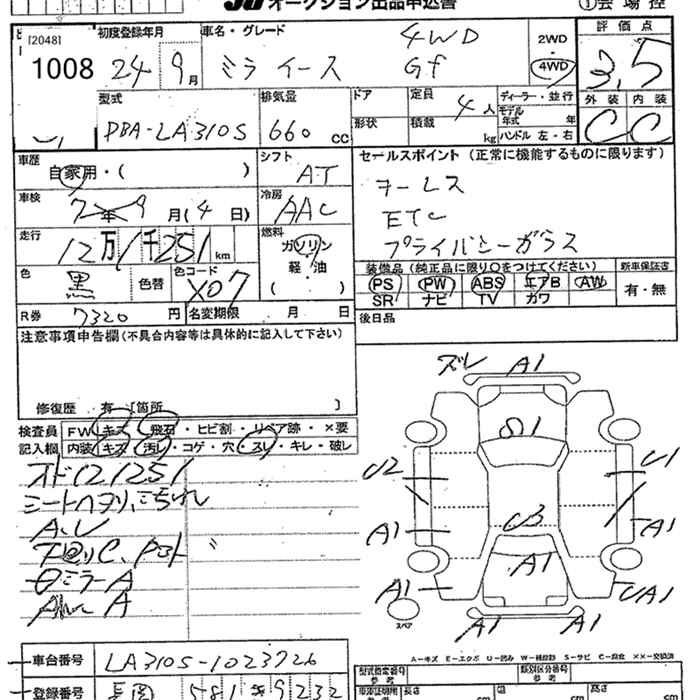 オークション出品申込書 ①会場控
[2048]
1008
初度登録年月
24年9月
車名・グレード
ミライース
4WD
Gf
2WD
4WD
評価点
3.5
外装 内装
C C
型式
DBA-LA310S
排気量
660 cc
ドア
形状
定員
4人
積載
kg
ディーラー・並行
モデル年式 年
ハンドル 左・右
車歴
自家用・( )
シフト
AT
セールスポイント(正常に機能するものに限ります)
キーレス
ETC
プライバシーガラス
車検
7年9月(4日)
冷房
AAC
走行
12万1千251km
燃料
ガソリン
軽・油
( )
色
黒
色替
色コード
X07
装備品(純正品に限り○をつけてください)
PS PW ABS エアB AW
SR ナビ TV カワ
新車保証書
有・無
R券 7320円
名変期限 月 日
後日品
注意事項申告欄(不具合内容等は具体的に記入して下さい)
修復歴 有 [箇所 ]
検査員
記入欄
FW キズ・飛石・ヒビ割・リペア跡・×要
内装 キズ・汚レ・コゲ・穴・スレ・キレ・破レ
オド121251
A.U
ミラーA
A
ズレ A1
S1
U2
U1
A1
A1
U3
A1
A1
UA1
スペア
A1 A1
A-キズ E-エクボ U-凹み W-補修跡 S-サビ C-腐食 XX-交換済
車台番号 LA310S-1023726
登録番号 長岡 581 9232
型式指定番号
参考
類別区分番号
参考
車検証明用
参考
長さ cm
幅 cm
高さ cm